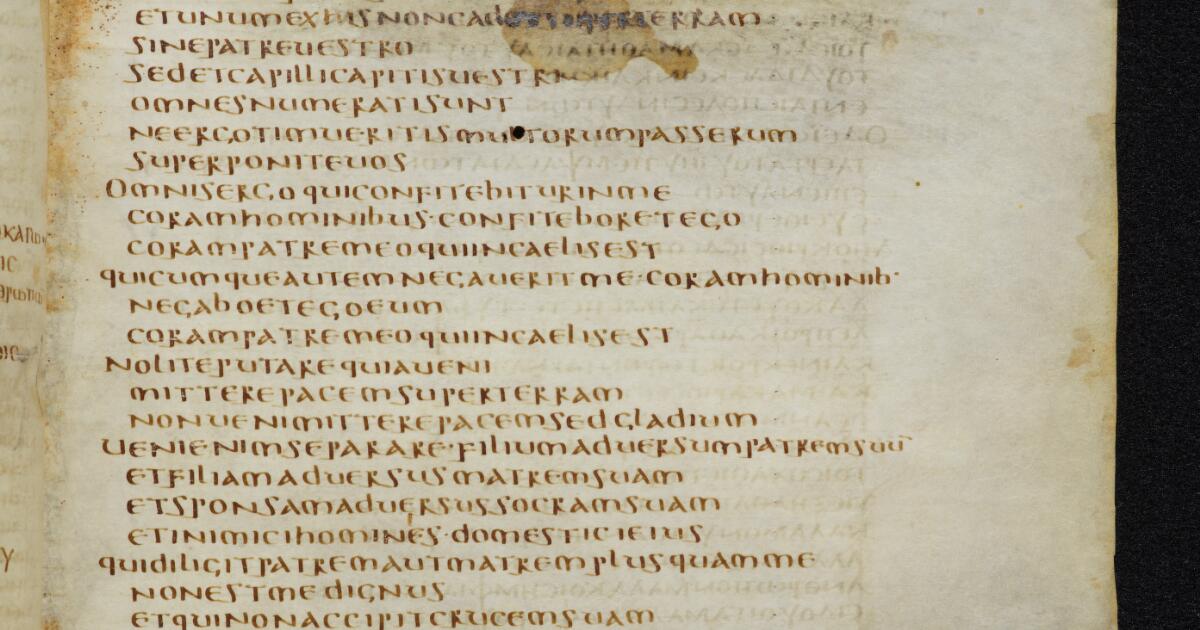 ETUNUMEXHISNONCADETSUPERTERRAM
SINEPATREUESTRO
SEDETCAPILLICAPITISUESTRI
OMNESNUMERATISUNT
NEERGOTIMUERITISMULTORUMPASSERUM
SUPERPONITEUOS
OMNISERGOQUICONFITEBITURINME
CORAMHOMINIBUS·CONFITEBORETEGO
CORAMPATREMEOQUIINCAELISEST
QUICUMQUEAUTEMNEGAUERITME·CORAMHOMINIB·
NEGABOETEGOEUM
CORAMPATREMEOQUIINCAELISEST
NOLITEPUTAREQUIAUENI
MITTEREPACEMSUPERTERRAM
NONUENIMITTEREPACEMSEDGLADIUM
UENIENIMSEPARARE·FILIUMADUERSUMPATREMSUU̅
ETFILIAMADUERSUSMATREMSUAM
ETSPONSAMADUERSUSSOCRAMSUAM
ETINIMICIHOMINES·DOMESTICIEIUS
QUIDILIGITPATREMAUTMATREMPLUSQUAMME
NONESTMEDIGNUS
ETQUINONACCIPITCRUCEMSUAM